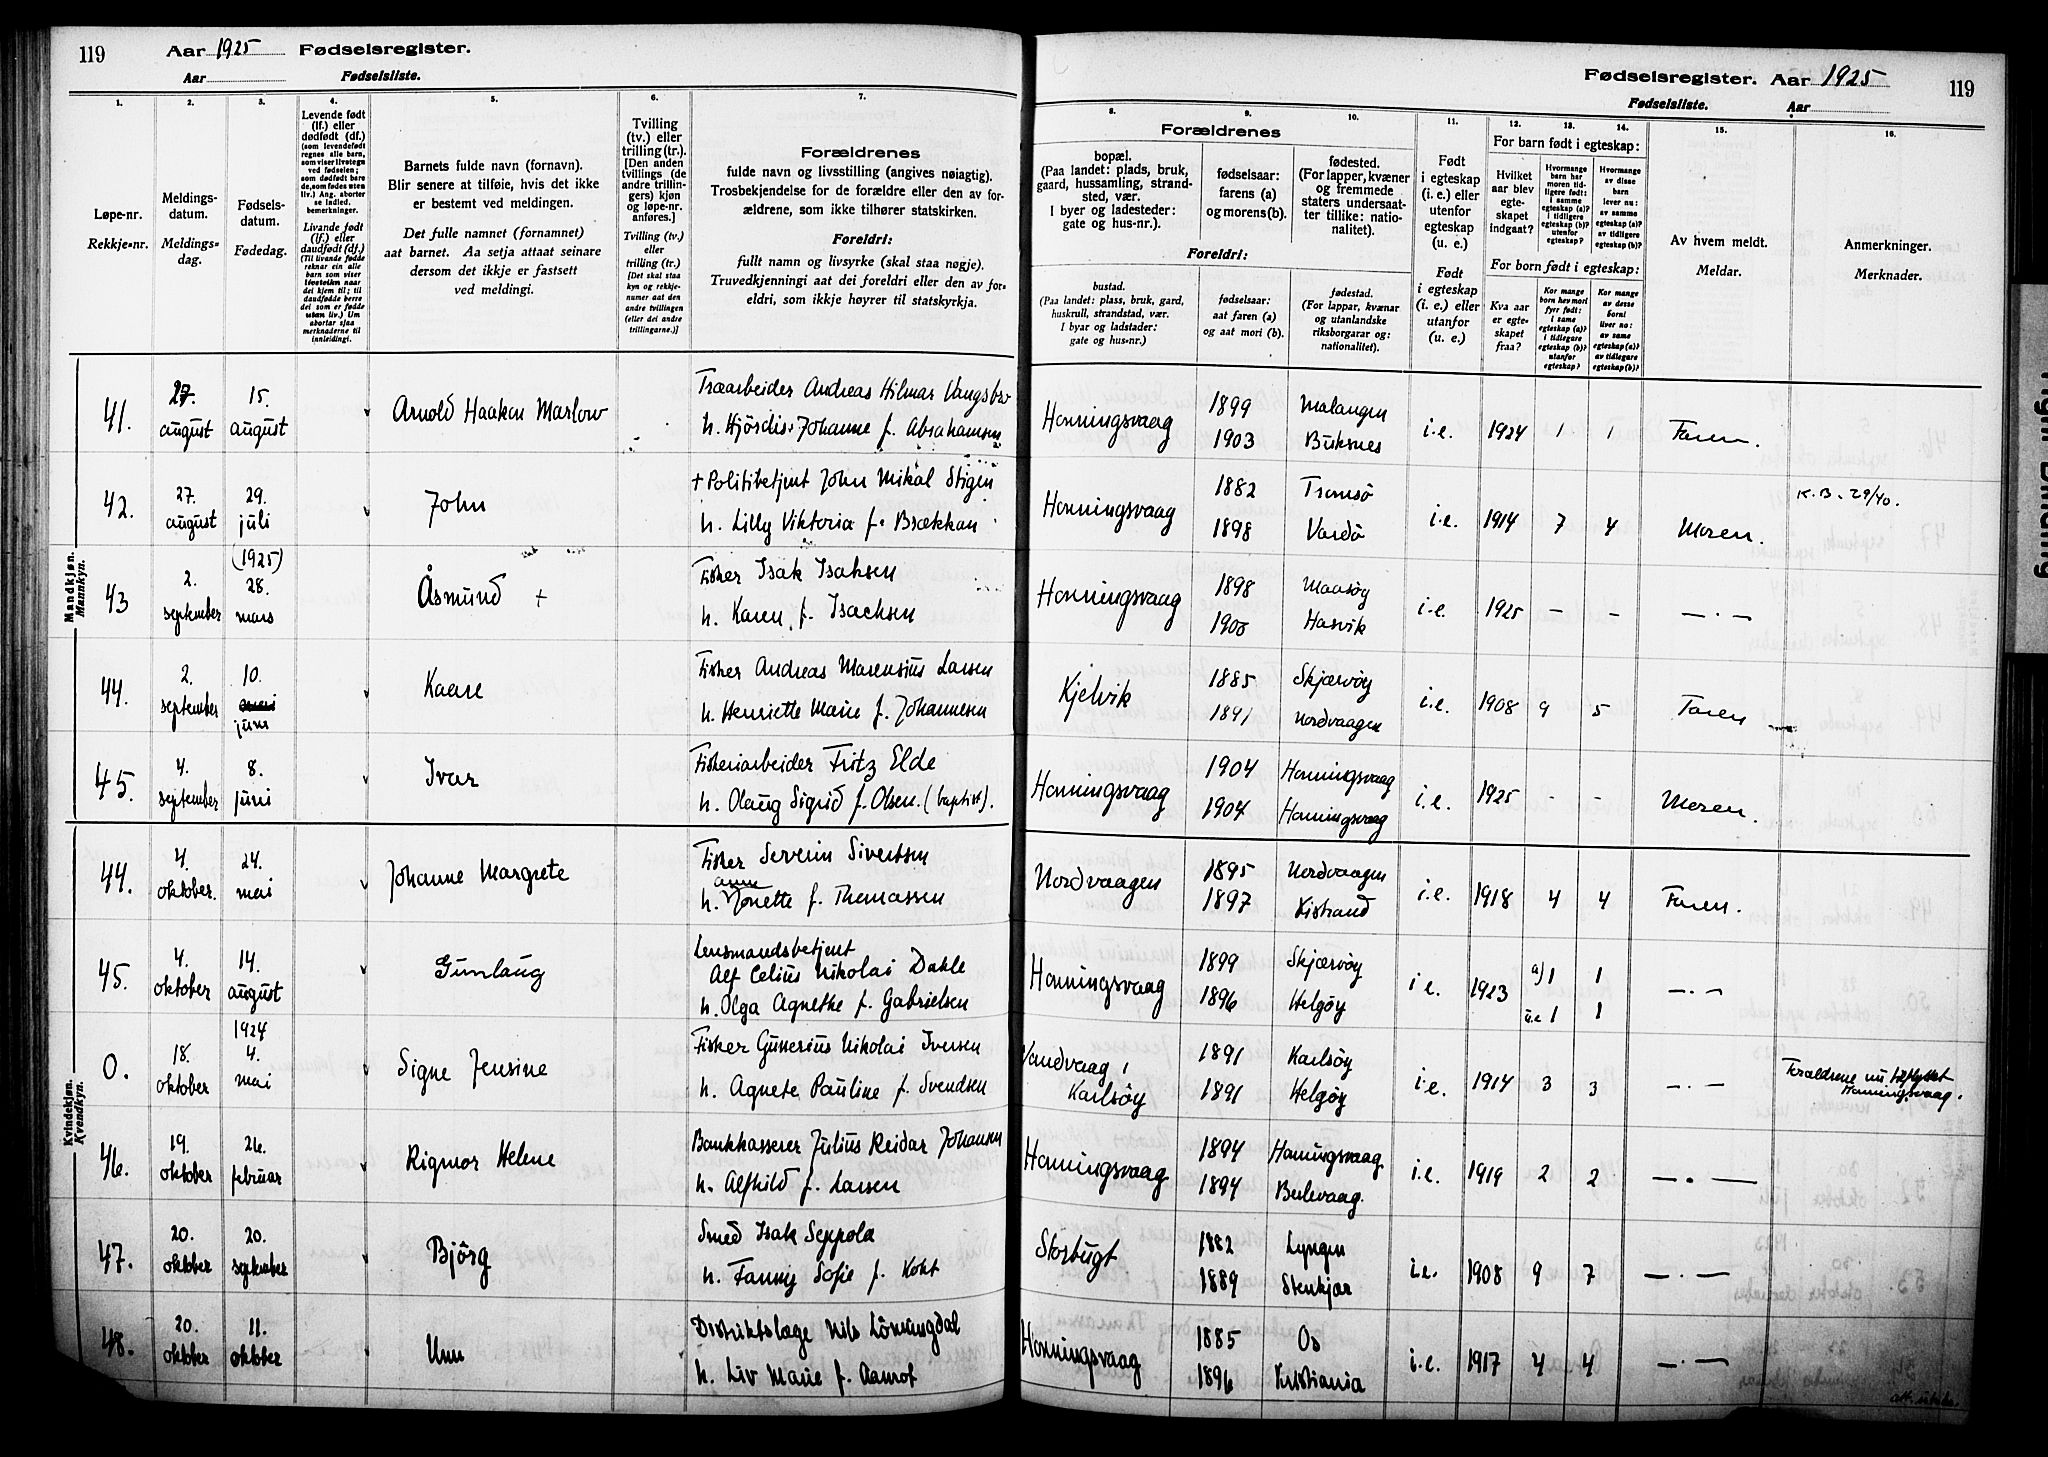 119 Aar 1925 Fødselsregister.
Aar Fødselsliste.
Fødselsregister. Aar 1925 119
Fødselsliste. Aar
1. 2. 3. 4. 5. 6. 7.
8. 9. 10. 11. 12. 13. 14. 15. 16.
Løpe-nr.
Rekkje=nr.
Meldings-
datum.
Meldings=
dag.
Fødsels-
datum.
Fødedag.
Levende født
(lf.) eller
dødfødt (df.)
(som levendefødt
regnes alle barn,
som viser livstegn
ved fødselen;
som dødfødt bare
de, som fødes uten
liv.) Ang. aborter
se ladled.
bemerkninger.
Livande født
(lf.) eller
daudfødt (df.)
(Til livande fødde
reknar ein alle
barn som viser
livsteikn naar
dei kjem til; til
daudfødde berre
dei som er fødde
utan liv.) Um
abortar sjaa
merknaderne til
innleidingi.
Barnets fulde navn (fornavn).
Blir senere at tilføie, hvis det ikke
er bestemt ved meldingen.
Det fulle namnet (fornamnet)
aat barnet. Aa setja attaat seinare
dersom det ikkje er fastsett
ved meldingi.
Tvilling
(tv.) eller
trilling (tr.).
[Den anden
tvillings (de
andre trillin-
gers) kjøn
og løpe-nr.
anføres.]
Tvilling (tv.)
eller
trilling (tr.)
[Det skal staa
kyn og rekkje-
numer aat den
andre tvillingen
(eller dei andre
trillingarne.)]
Forældrenes
fulde navn og livsstilling (angives nøiagtig).
Trosbekjendelse for de forældre eller den av for-
ældrene, som ikke tilhører statskirken.
Foreldri:
fullt namn og livsyrke (skal staa nøgje).
Truvedkjenningi aat dei foreldri eller den av for=
eldri, som ikkje høyrer til statskyrkja.
Forældrenes
bopæl.
(Paa landet: plads, bruk,
gaard, hussamling, strand-
sted, vær.
I byer og ladesteder:
gate og hus-nr.).
fødselsaar:
farens (a)
og morens (b).
fødested.
(For lapper, kvæner
og fremmede
staters undersaat-
ter tillike: natio-
nalitet).
Foreldri:
bustad.
(Paa landet: plass, bruk, gard,
huskrull, strandstad, vær.
I byar og ladstader:
gate og hus=nr.)
fødselsaar:
aat faren (a)
og aat mori (b).
fødestad.
(For lappar, kvænar
og utanlandske
riksborgarar og:
nationalitet).
Født
i egteskap
(i. e.) eller
utenfor
egteskap
(u. e.)
Født
i egteskap
(i. e.) eller
utanfor
(u. e.)
For barn født i egteskap:
Hvilket
aar blev
egte-
skapet
indgaat?
Hvormange
barn har
moren tid-
ligere født:
i samme
egteskap (a)?
i tidligere
egteskap (b)?
utenfor
egteskap?
Hvormange
av disse
barn
lever nu:
av samme
egteskap (a)?
av tidligere
egteskap (b)?
For born født i egteskap:
Kva aar
er egte-
skapet
fraa?
Kor mange
born hev mori
fyrr født:
i same
egteskap (a)?
i tidlegare
egteskap (b)?
utanfor
egteskap?
Kor mange
av desse
borni
liver no:
av same
egteskap (a)?
av tidlegare
egteskap (b)?
Av hvem meldt.
Meldar.
Anmerkninger.
Merknader.
Mandkjøn.
Mannkyn.
41. 27. august 15. august Arnold Haakon Marlow
Træarbeider Andreas Hilmar Vangsbro
h. Hjördis Johanne f. Abrahamsen
Honningsvaag 1899 Malangen
1903 Buksnes i.e. 1924 1 1 Faren.
42. 27. august 29. juli John
+ Politibetjent John Mikal Stigen
h. Lilly Viktoria f. Brækkan
Honningsvaag 1882 Tromsö
1898 Vardö i.e. 1914 7 4 Moren. K.B. 29/40.
43 2. september (1925) 28. mars Åsmund +
Fisker Isak Isaksen
h. Karen f. Isachsen
Honningsvaag 1898 Maasöy
1900 Hasvik i.e. 1925 - - —.—
44. 2. september 10. juni Kaare
Fisker Andreas Marensius Larsen
h. Henriette Marie f. Johannesen
Kjelvik 1885 Skjærvöy
1891 Nordvaagen i.e. 1908 9 5 Faren
45. 4. september 8. juni Ivar
Fiskeriarbeider Fritz Elde
h. Olaug Sigrid f. Olsen. (baptist).
Honningsvaag 1904 Honningsvaag
1904 Honningsvaag i.e. 1925 - - Moren.
Kvindekjøn.
Kvendkyn.
44. 4. oktober. 24. mai Johanne Margrete
Fisker Severin Sivertsen
h. Jonette f. Thomassen
Nordvaagen 1895 Nordvaagen
1897 Kistrand i.e. 1918 4 4 Faren.
45. 4. oktober 14. august Gunlaug
Lensmandsbetjent
Alf Celius Nikolai Dahle
h. Olga Agnethe f. Gabrielsen
Honningsvaag 1899 Skjærvöy
1896 Helgöy i e. 1923 a) 1 1
u.e 1 1 —.—
0. 18. oktober 1924 4. mai Signe Jensine
Fisker Gunerius Nikolai Iversen
h. Agnete Pauline f. Svendsen
Vandvaag i Karlsöy 1891 Karlsöy
1891 Helgöy i.e. 1914 3 3 —.— Forældrene nu tilflyttet
Honningsvaag.
46. 19. oktober 26. februar Rigmor Helene
Bankkasserer Julius Reidar Johansen
h. Alfhild f. Larsen
Honningsvaag 1894 Honningsvaag
1894 Berlevaag. i.e. 1919 2 2 —.—
47. 20. oktober 20. september Björg
Smed Isak Seppola
h. Fanny Sofie f. Kokt
Storbugt 1882 Lyngen
1889 Stenkjær i.e. 1908 9 7 —.—
48. 20. oktober 11. oktober Unn
Distriktslæge Nils Lönningdal
h. Liv Marie f. Aamot
Honningsvaag 1885 Os
1896 Kristiania i.e. 1917 4 4 —.—